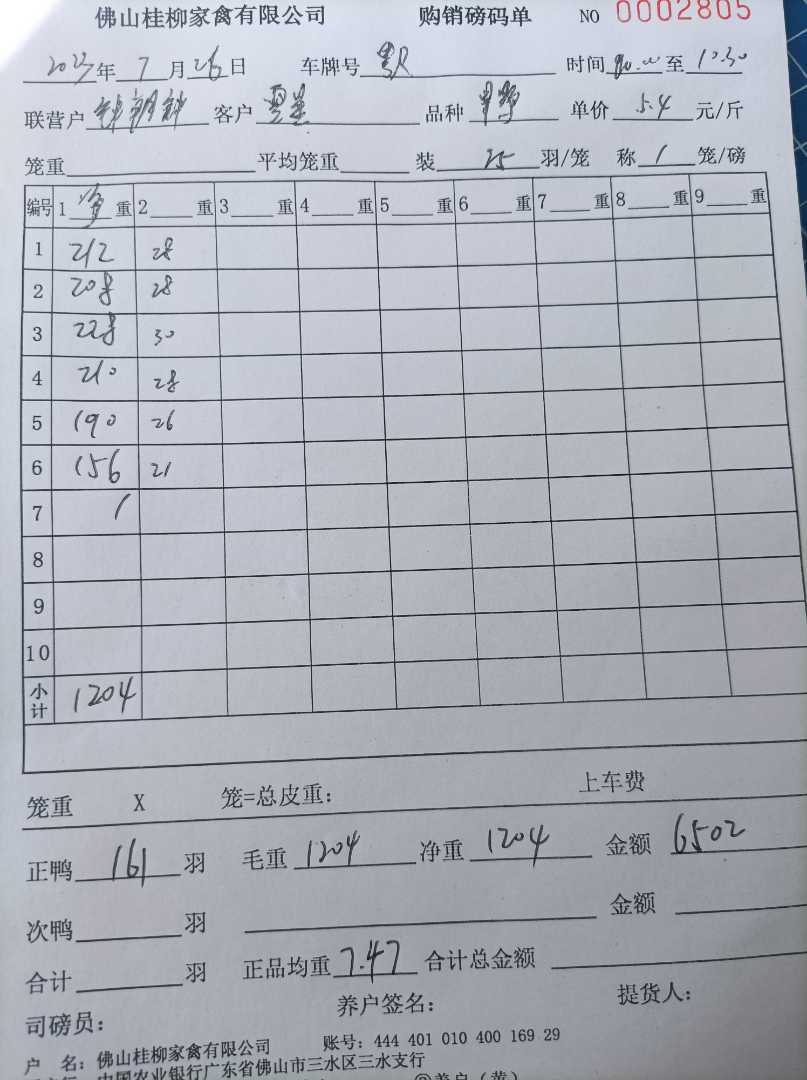 佛山桂柳家禽有限公司 购销磅码单 NO 0002805
2023年 7 月 26 日 车牌号 时间 至 10:30
联营户 客户 品种 单价 5.4 元/斤
笼重 平均笼重 装 25 羽/笼 称 1 笼/磅
编号 1 重 2 重 3 重 4 重 5 重 6 重 7 重 8 重 9 重
1 212 28
2 208 28
3 228 30
4 210 28
5 190 26
6 156 21
7
8
9
10
小计 1204
笼重 X 笼=总皮重: 上车费
正鸭 161 羽 毛重 1204 净重 1204 金额 6502
次鸭 羽 金额
合计 羽 正品均重 7.47 合计总金额
司磅员: 养户签名: 提货人:
户 名: 佛山桂柳家禽有限公司 账号: 444 401 010 400 169 29
中国农业银行广东省佛山市三水区三水支行